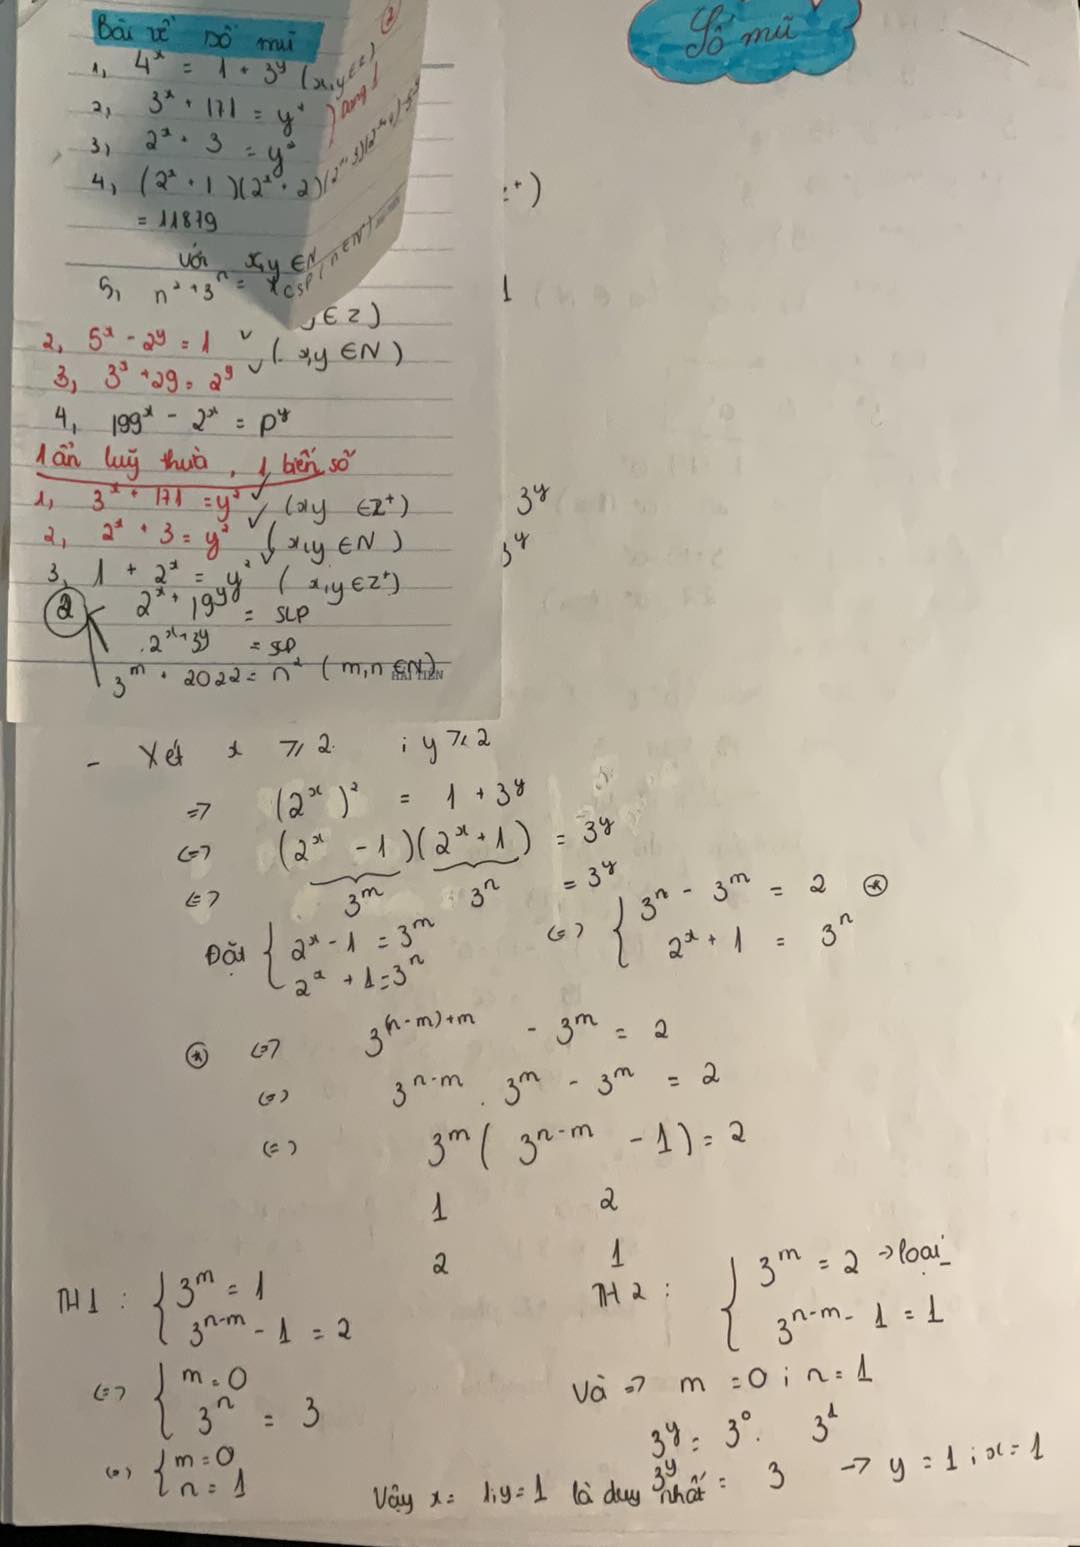 Số mũ
Bài về số mũ
②
1, 4^x = 1 + 3^y (x,y ∈ Z)
2, 3^x + 171 = y²
Dạng 1
3, 2^x + 3 = y²
4, (2^x + 1)(2^x + 2)(2^x + 3)(2^x + 4) - 5^y
= 11879
với x,y ∈ N
5, n² + 3^n = CSP (n ∈ N)
z⁺)
1
y ∈ Z)
2, 5^x - 2^y = 1 ✓ (x,y ∈ N)
3, 3^x + 29 = 2^y ✓
4, 199^x - 2^x = p^y
1 ẩn luỹ thừa, 1 biến số
1, 3^x + 171 = y² ✓ (xy ∈ Z⁺)
3^y
2, 2^x + 3 = y² ✓ (x,y ∈ N)
3^y
3, 1 + 2^x = y² ✓ (x,y ∈ Z⁺)
② 2^x + 19^y = SCP
2^x + 3^y = SCP
3^m + 2022 = n² (m,n ∈ N)
HẢI TIẾN
- Xét x ⩾ 2 ; y ⩾ 2
=> (2^x)² = 1 + 3^y
<=> (2^x - 1)(2^x + 1) = 3^y
<=> 3^m . 3^n = 3^y
Đặt { 2^x - 1 = 3^m <=> { 3^n - 3^m = 2 ⊛
2^x + 1 = 3^n 2^x + 1 = 3^n
⊛ <=> 3^(n-m)+m - 3^m = 2
<=> 3^n-m . 3^m - 3^m = 2
<=> 3^m ( 3^n-m - 1) = 2
1 2
2 1
TH1 : { 3^m = 1 TH2 : { 3^m = 2 → loại
3^n-m - 1 = 2 3^n-m - 1 = 1
<=> { m = 0 Và => m = 0 ; n = 1
3^n = 3 3^y = 3^0 . 3^1
<=> { m = 0 3^y = 3 → y = 1 ; x = 1
n = 1
Vậy x = 1, y = 1 là duy nhất